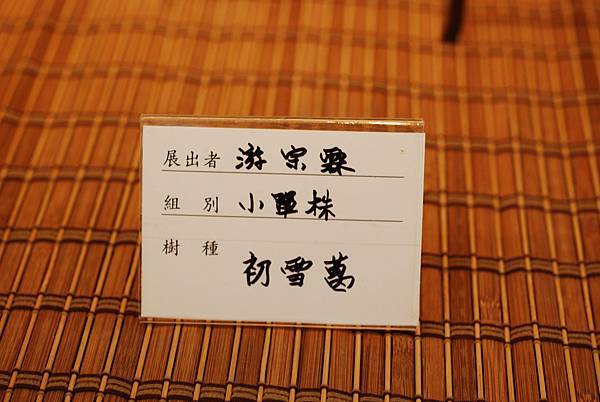 展出者 游宗霖
組別 小單株
樹種 初雪葛